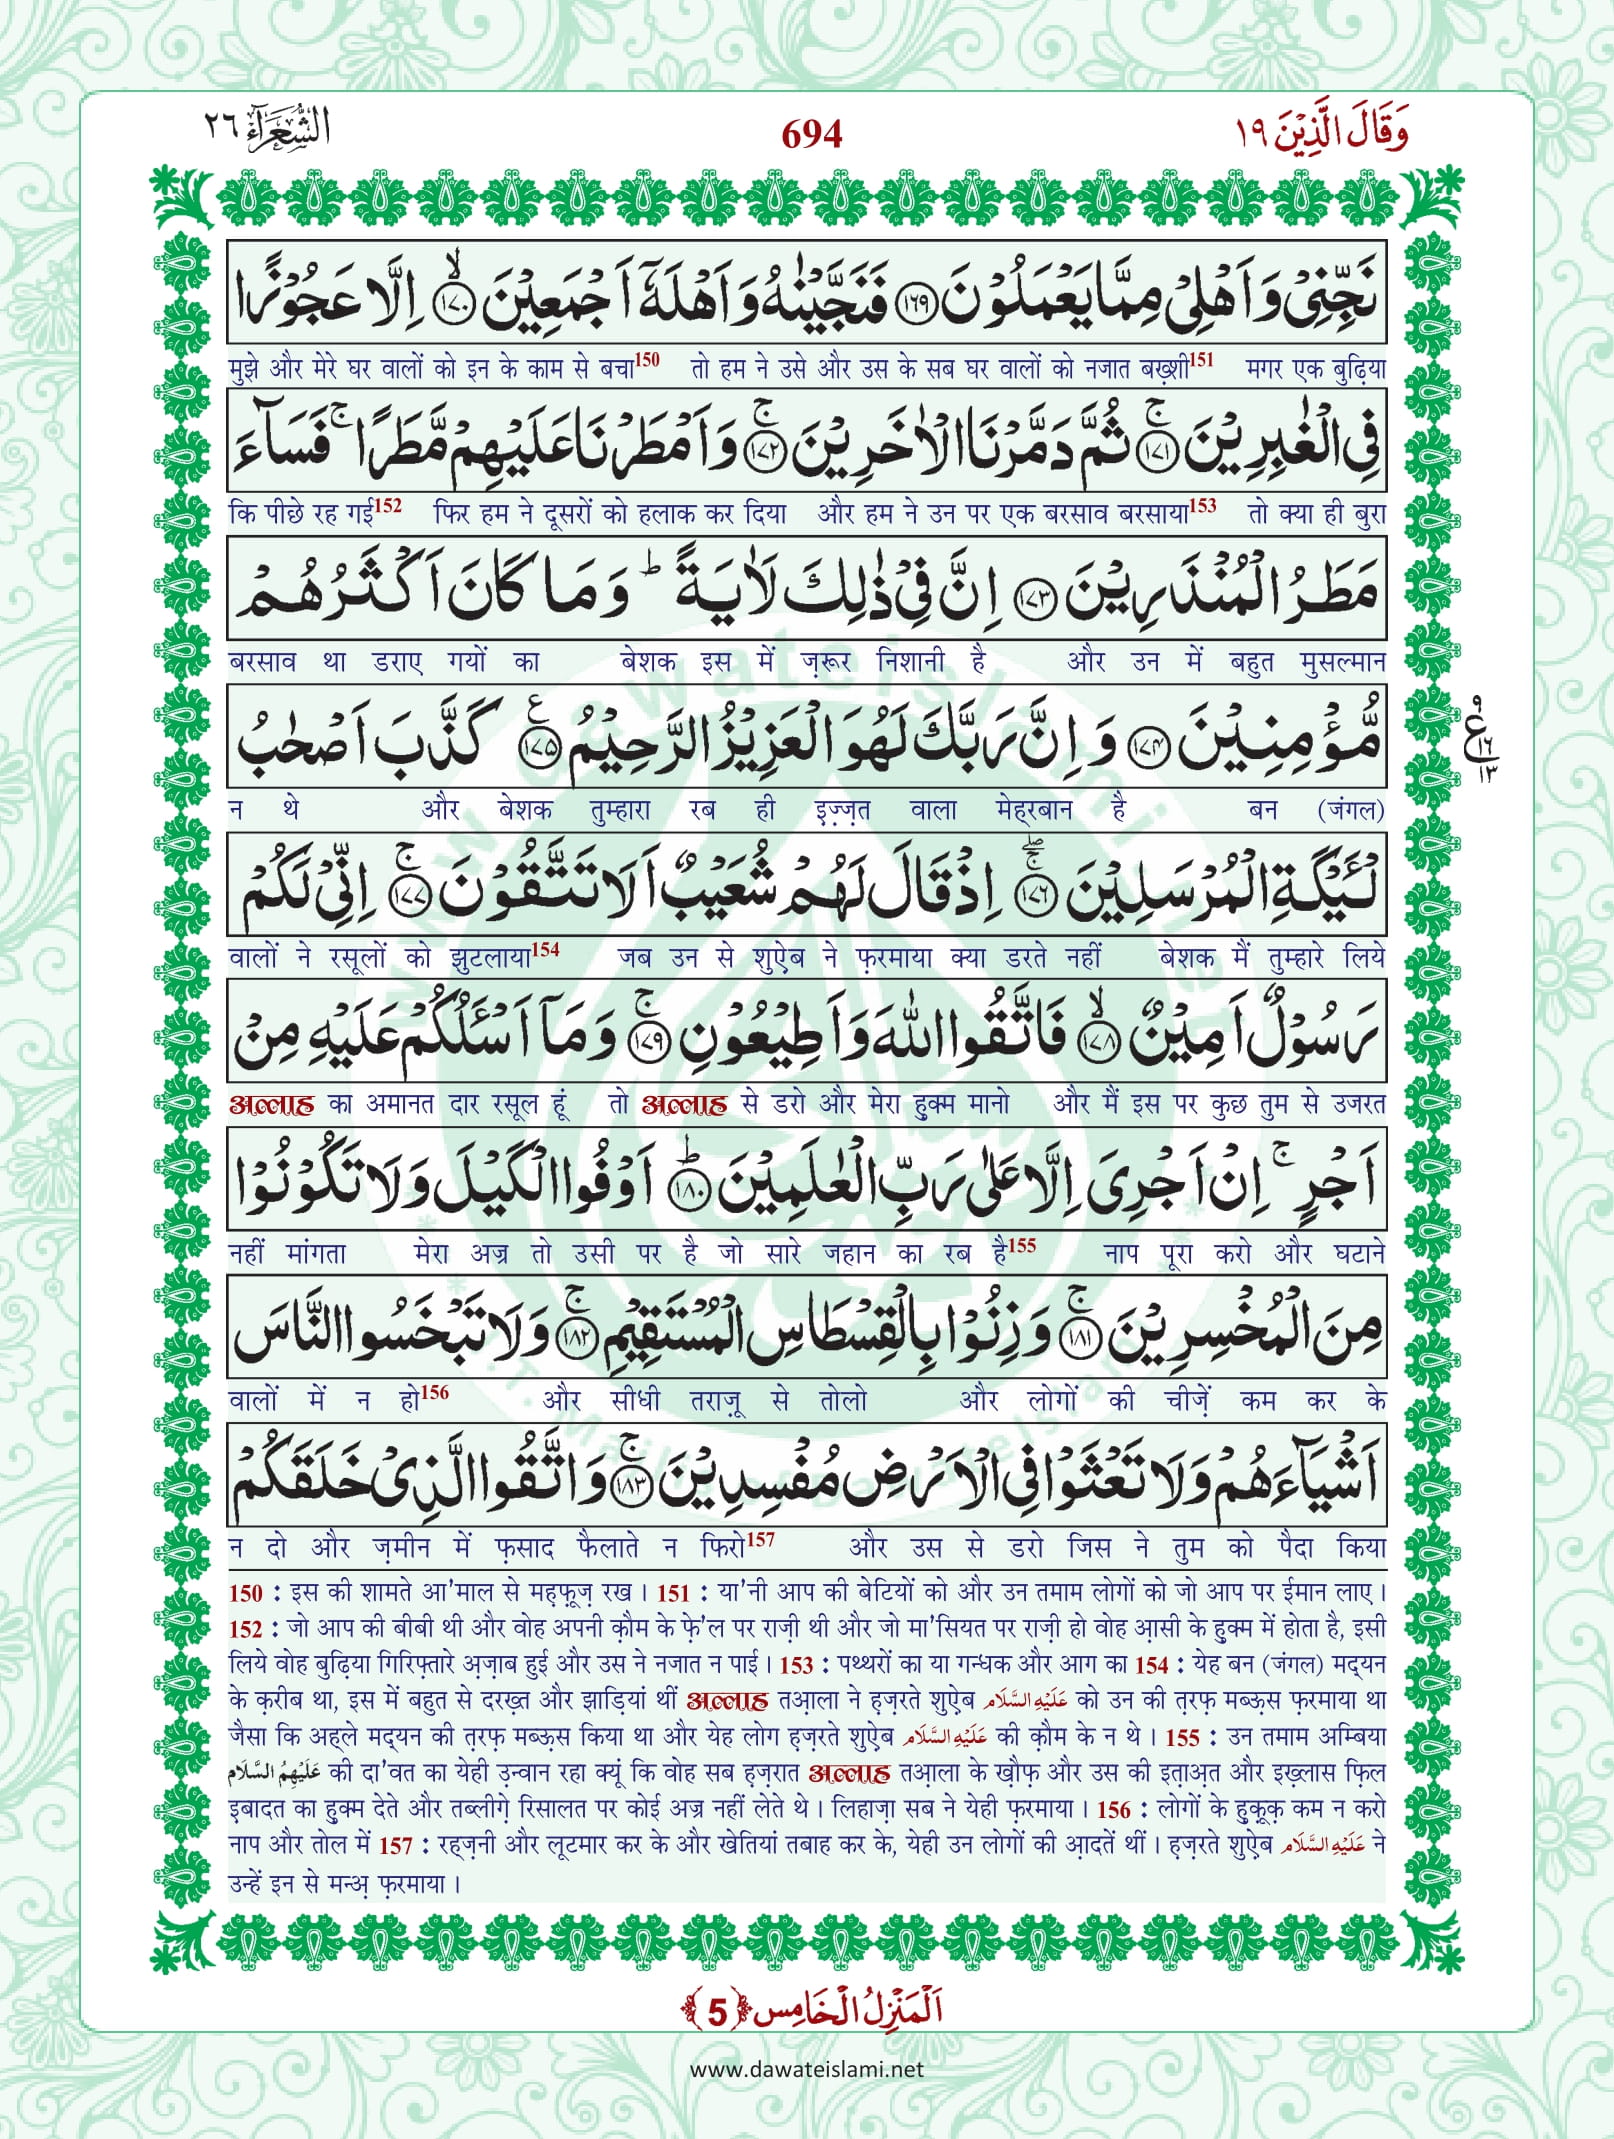 وَقَالَ الَّذِیْنَ ١٩ 694 الشُّعَرَآء ٢٦
نَجِّنِیْ وَ اَهْلِیْ مِمَّا یَعْمَلُوْنَ ﴿۱۶۹﴾ فَنَجَّیْنٰهُ وَ اَهْلَهٗۤ اَجْمَعِیْنَ ﴿۱۷۰﴾ۙ اِلَّا عَجُوْزًا
मुझे और मेरे घर वालों को इन के काम से बचा150 तो हम ने उसे और उस के सब घर वालों को नजात बख़्शी151 मगर एक बुढ़िया
فِی الْغٰبِرِیْنَ ﴿۱۷۱﴾ۚ ثُمَّ دَمَّرْنَا الْاٰخَرِیْنَ ﴿۱۷۲﴾ۚ وَ اَمْطَرْنَا عَلَیْهِمْ مَّطَرًاۚ فَسَآءَ
कि पीछे रह गई152 फिर हम ने दूसरों को हलाक कर दिया और हम ने उन पर एक बरसाव बरसाया153 तो क्या ही बुरा
مَطَرُ الْمُنْذَرِیْنَ ﴿۱۷۳﴾ اِنَّ فِیْ ذٰلِكَ لَاٰیَةًؕ وَ مَا كَانَ اَكْثَرُهُمْ
बरसाव था डराए गयों का बेशक इस में ज़रूर निशानी है और उन में बहुत मुसल्मान
مُّؤْمِنِیْنَ ﴿۱۷۴﴾ وَ اِنَّ رَبَّكَ لَهُوَ الْعَزِیْزُ الرَّحِیْمُ ﴿۱۷۵﴾ع كَذَّبَ اَصْحٰبُ
ع ٩ ١٦ ١٣
न थे और बेशक तुम्हारा रब ही इज़्ज़त वाला मेह्रबान है बन (जंगल)
لْــٴَـیْكَةِ الْمُرْسَلِیْنَ ﴿۱۷۶﴾ۚۖ اِذْ قَالَ لَهُمْ شُعَیْبٌ اَلَا تَتَّقُوْنَ ﴿۱۷۷﴾ۚ اِنِّیْ لَكُمْ
वालों ने रसूलों को झुटलाया154 जब उन से शुऐब ने फ़रमाया क्या डरते नहीं बेशक मैं तुम्हारे लिये
رَسُوْلٌ اَمِیْنٌ ﴿۱۷۸﴾ۙ فَاتَّقُوا اللّٰهَ وَ اَطِیْعُوْنِ ﴿۱۷۹﴾ۚ وَ مَاۤ اَسْــٴَـلُكُمْ عَلَیْهِ مِنْ
अल्लाह का अमानत दार रसूल हूं तो अल्लाह से डरो और मेरा हुक्म मानो और मैं इस पर कुछ तुम से उजरत
اَجْرٍۚ اِنْ اَجْرِیَ اِلَّا عَلٰی رَبِّ الْعٰلَمِیْنَ ﴿۱۸۰﴾ؕ اَوْفُوا الْكَیْلَ وَ لَا تَكُوْنُوْا
नहीं मांगता मेरा अज्र तो उसी पर है जो सारे जहान का रब है155 नाप पूरा करो और घटाने
مِنَ الْمُخْسِرِیْنَ ﴿۱۸۱﴾ۚ وَ زِنُوْا بِالْقِسْطَاسِ الْمُسْتَقِیْمِ ﴿۱۸۲﴾ۚ وَ لَا تَبْخَسُوا النَّاسَ
वालों में न हो156 और सीधी तराज़ू से तोलो और लोगों की चीज़ें कम कर के
اَشْیَآءَهُمْ وَ لَا تَعْثَوْا فِی الْاَرْضِ مُفْسِدِیْنَ ﴿۱۸۳﴾ۚ وَ اتَّقُوا الَّذِیْ خَلَقَكُمْ
न दो और ज़मीन में फ़साद फैलाते न फिरो157 और उस से डरो जिस ने तुम को पैदा किया
150 : इस की शामते आ'माल से महफ़ूज़ रख । 151 : या'नी आप की बेटियों को और उन तमाम लोगों को जो आप पर ईमान लाए ।
152 : जो आप की बीबी थी और वोह अपनी क़ौम के फ़े'ल पर राज़ी थी और जो मा'सियत पर राज़ी हो वोह आ़सी के हुक्म में होता है, इसी
लिये वोह बुढ़िया गिरिफ़्तारे अ़ज़ाब हुई और उस ने नजात न पाई । 153 : पथ्थरों का या गन्धक और आग का 154 : येह बन (जंगल) मद्यन
के क़रीब था, इस में बहुत से दरख़्त और झाड़ियां थीं अल्लाह तआ़ला ने हज़रते शुऐब عَلَیْهِ السَّلَام को उन की त़रफ़ मब्ऊ़स फ़रमाया था
जैसा कि अह्ले मद्यन की त़रफ़ मब्ऊ़स किया था और येह लोग हज़रते शुऐब عَلَیْهِ السَّلَام की क़ौम के न थे । 155 : उन तमाम अम्बिया
عَلَیْهِمُ السَّلَام की दा'वत का येही उ़न्वान रहा क्यूं कि वोह सब हज़रात अल्लाह तआ़ला के ख़ौफ़ और उस की इत़ाअ़त और इख़्लास फ़िल
इबादत का हुक्म देते और तब्लीग़े रिसालत पर कोई अज्र नहीं लेते थे । लिहाज़ा सब ने येही फ़रमाया । 156 : लोगों के हुक़ूक़ कम न करो
नाप और तोल में 157 : रहज़नी और लूटमार कर के और खेतियां तबाह कर के, येही उन लोगों की आ़दतें थीं । हज़रते शुऐब عَلَیْهِ السَّلَام ने
उन्हें इन से मन्अ़ फ़रमाया ।
اَلْمَنْزِلُ الْخَامِس ﴿5﴾
www.dawateislami.net